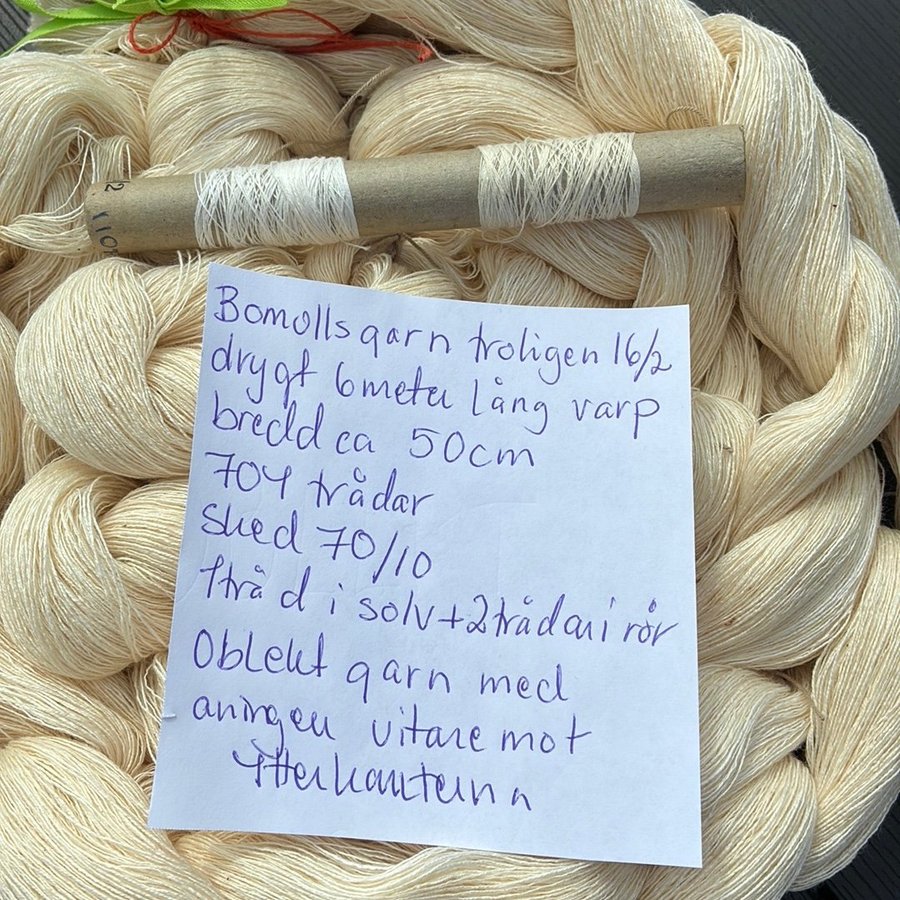 2
110
Bomullsgarn troligen 16/2
drygt 6 meter lång varp
bredd ca 50cm
704 trådar
Sked 70/10
1tråd i solv+2trådar i rör
Oblekt garn med
aningen vitare mot
ytterkanterna